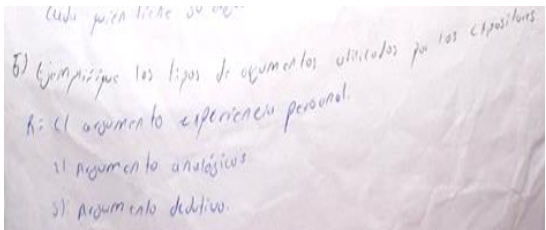 Cada quien tiene su
5) Ejemplifique los tipos de argumentos utilizados por los expositores
R: el argumento experiencia personal.
11 Argumento analógicos
3) Argumento dedutivo.